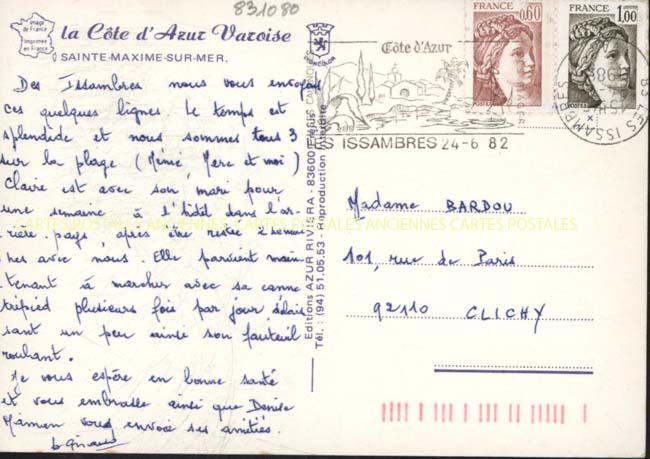 831080
Image de France
Imprimée en France
la Côte d'Azur Varoise
SAINTE-MAXIME-SUR-MER.
Des Issambres nous vous envoyons
ces quelques lignes. Le temps est
splendide et nous sommes tous 3
sur la plage (Mémé, Merc et moi)
Claire est avec son mari pour
une semaine à l'hôtel dans l'ar-
rière-pays, après être restée 2 semai
nes avec nous. Elle parvient main
tenant à marcher avec sa canne
trépied plusieurs fois par jour délais
sant un peu ainsi son fauteuil
roulant.
Je vous espère en bonne santé
et vous embrasse ainsi que Denise
Maman vous envoie ses amitiés.
Editions AZUR RIVIERA - 83600
Tél.: (94) 51.05.53 - Reproduction
FRANCE
0,60
POSTES
FRANCE
1,00
POSTES
Côte d'Azur
LES ISSAMBRES 24-6 82
83 LES ISSAMBRES
Madame BARDOU
101, rue de Paris
92110 CLICHY
CARTES POSTALES ANCIENNES CARTES POSTALES ANCIENNES CARTES POSTALES